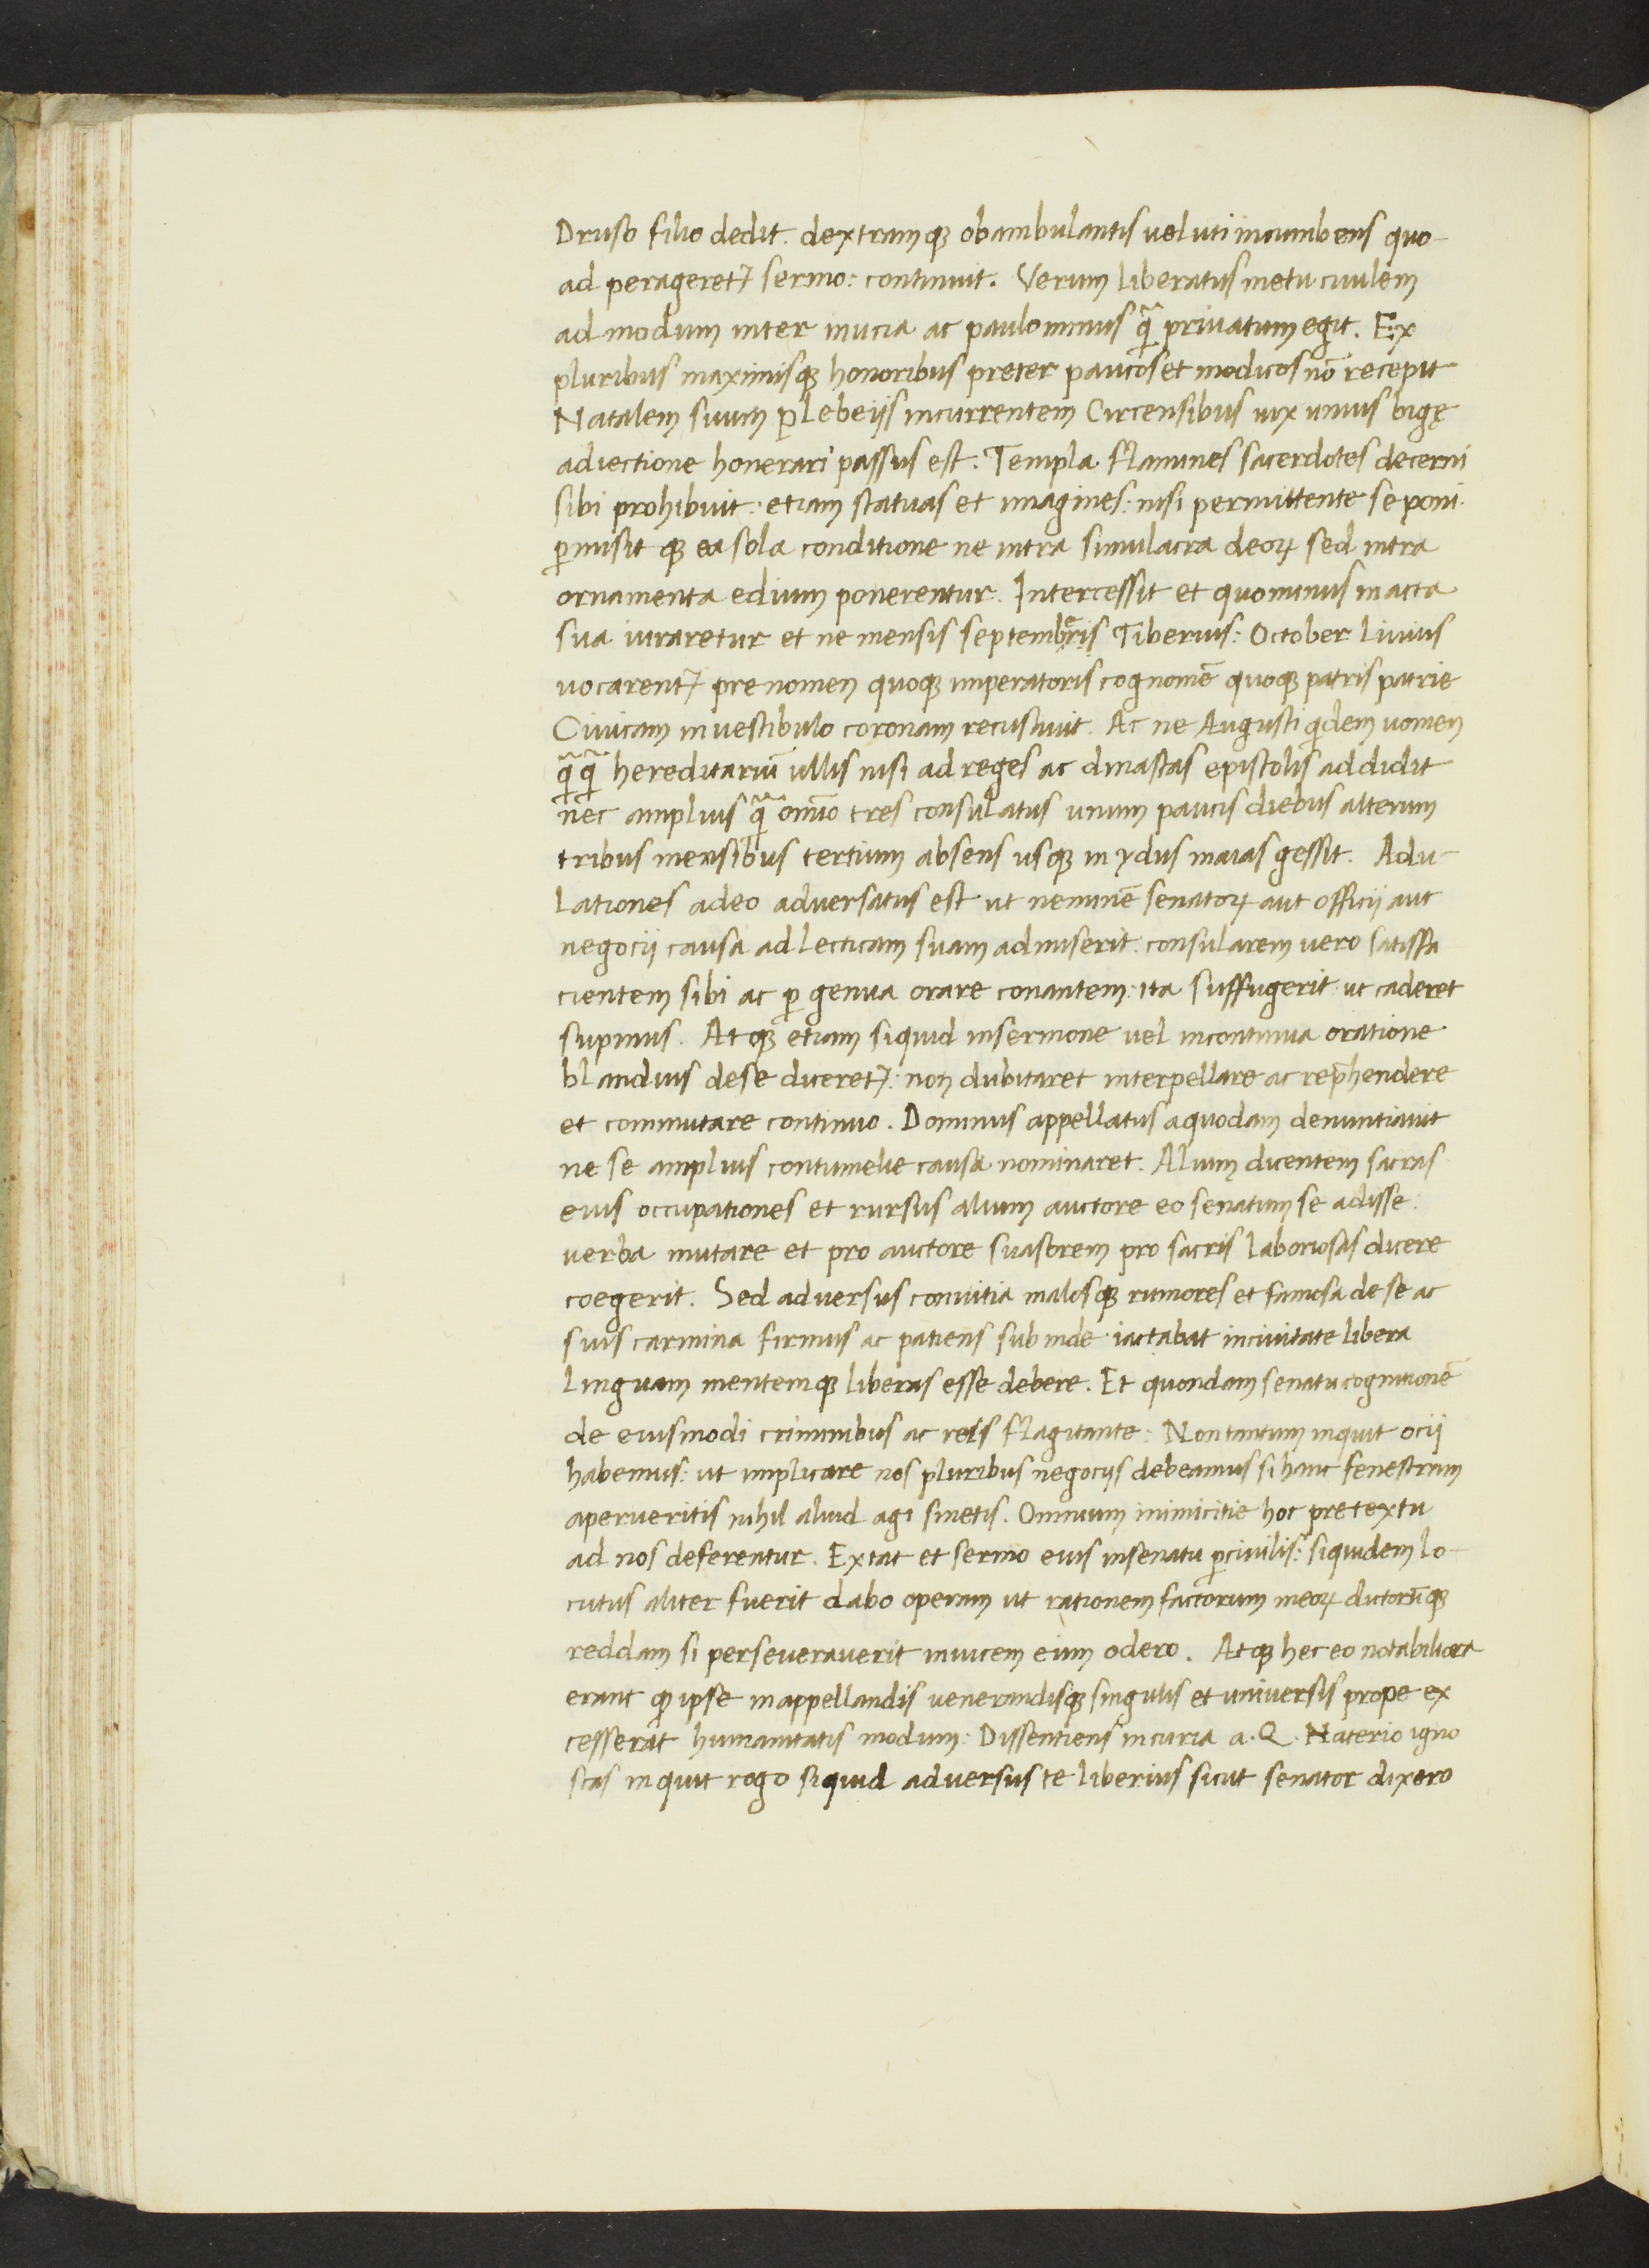 Druso filio dedit. dextramqꝫ obambulantis veluti incumbens quo-
ad perageretꝛ sermo: continuit. Verum liberatus metu civilem
admodum inter inicia ac paulominus q̃ privatum egit. Ex
pluribus maximisqꝫ honoribus preter paucos et modicos nō recepit
Natalem suum plebeijs incurrentem Circensibus vix unius bigę
adiectione honerari passus est. Templa flamines sacerdotes decerni
sibi prohibuit: etiam statuas et imagines: nisi permittente se poni.
ꝑmisit qꝫ ea sola conditione ne intra simulacra deoꝝ sed intra
ornamenta edium ponerentur. Intercessit et quominus in acta
sua iuraretur et ne mensis septembris Tiberius: October Livius
vocarentꝛ prenomen quoqꝫ imperatoris cognomē quoqꝫ patris patrie
Civicam in vestibulo coronam recusavit. Ac ne Augusti qͥdem nomen
q̃q̃ hereditariū ullis nisi ad reges ac dinastas epistolis addidit
nec amplius q̃ omīo tres consulatus unum paucis diebus alterum
tribus mensibus tertium absens usqꝫ in ydus maias gessit. Adu-
lationes adeo adversatus est ut neminē senatoꝝ aut officij aut
negocij causa ad lecticam suam admiserit. consularem vero satisfa
cientem sibi ac ꝑ genua orare conantem: ita suffugerit: ut caderet
supinus. Atqꝫ etiam siquid insermone vel incontinua oratione
blandius dese diceretꝛ: non dubitaret interpellare ac rep̄hendere
et commutare continuo. Dominus appellatus aquodam denuntiavit
ne se amplius contumelie causa nominaret. Alium dicentem sacras
eius occupationes et rursus alium auctore eo senatum se adisse:
verba mutare et pro auctore suasorem pro sacris laboriosas dicere
coegerit. Sed adversus convitia malosqꝫ rumores et famosa dese ac
suis carmina firmus ac patiens subinde iactabat incivitate libera
linguam mentemqꝫ liberas esse debere. Et quondam senatu cognitionē
de eiusmodi criminibus ac reis flagitante: Non tantum inquit ocij
habemus: ut implicare nos pluribus negocijs debeamus si hanc fenestram
aperueritis nihil aliud agi sinetis. Omnium inimicitie hoc pretextu
ad nos deferentur. Extat et sermo eius insenatu ꝑcivilis: siquidem lo-
cutus aliter fuerit dabo operam ut rationem factorum meoꝝ dictorūqꝫ
reddam si perseveraverit invicem eum odero. Atqꝫ hec eo notabiliora
erant ꝙ ipse inappellandis venerandisqꝫ singulis et universis prope ex
cesserat humanitatis modum: Dissentiens incuria a. Q. Haterio igno
scas inquit rogo siquid adversus te liberius sicut senator dixero